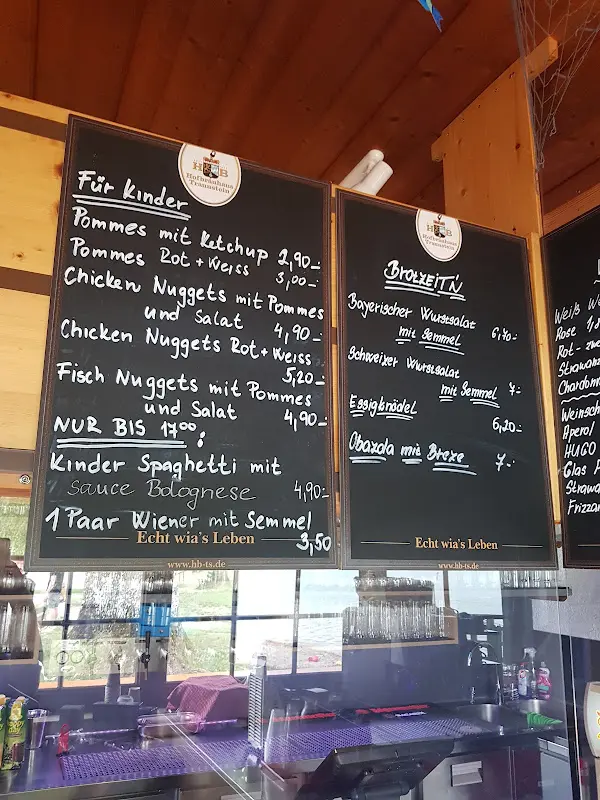 HB
Hofbräuhaus
Traunstein
Für Kinder
Pommes mit Ketchup 2,90-
Pommes Rot + Weiss 3,00-
Chicken Nuggets mit Pommes
und Salat 4,90-
Chicken Nuggets Rot + Weiss
5,20-
Fisch Nuggets mit Pommes
und Salat 4,90-
NUR BIS 17⁰⁰!
Kinder Spaghetti mit
Sauce Bolognese 4,90-
1 Paar Wiener mit Semmel
3,50
Echt wia's Leben
www.hb-ts.de
HB
Hofbräuhaus
Traunstein
BROTZEIT'N
Bayerischer Wurstsalat
mit Semmel 6,40-
Schweizer Wurstsalat
mit Semmel 7-
Essigknödel
6,20-
Obazda mit Breze 7-
Echt wia's Leben
www.hb-ts.de
Weiß
Rose
Rot -
Weinsch
Aperol
HUGO
Glas
Frizzan